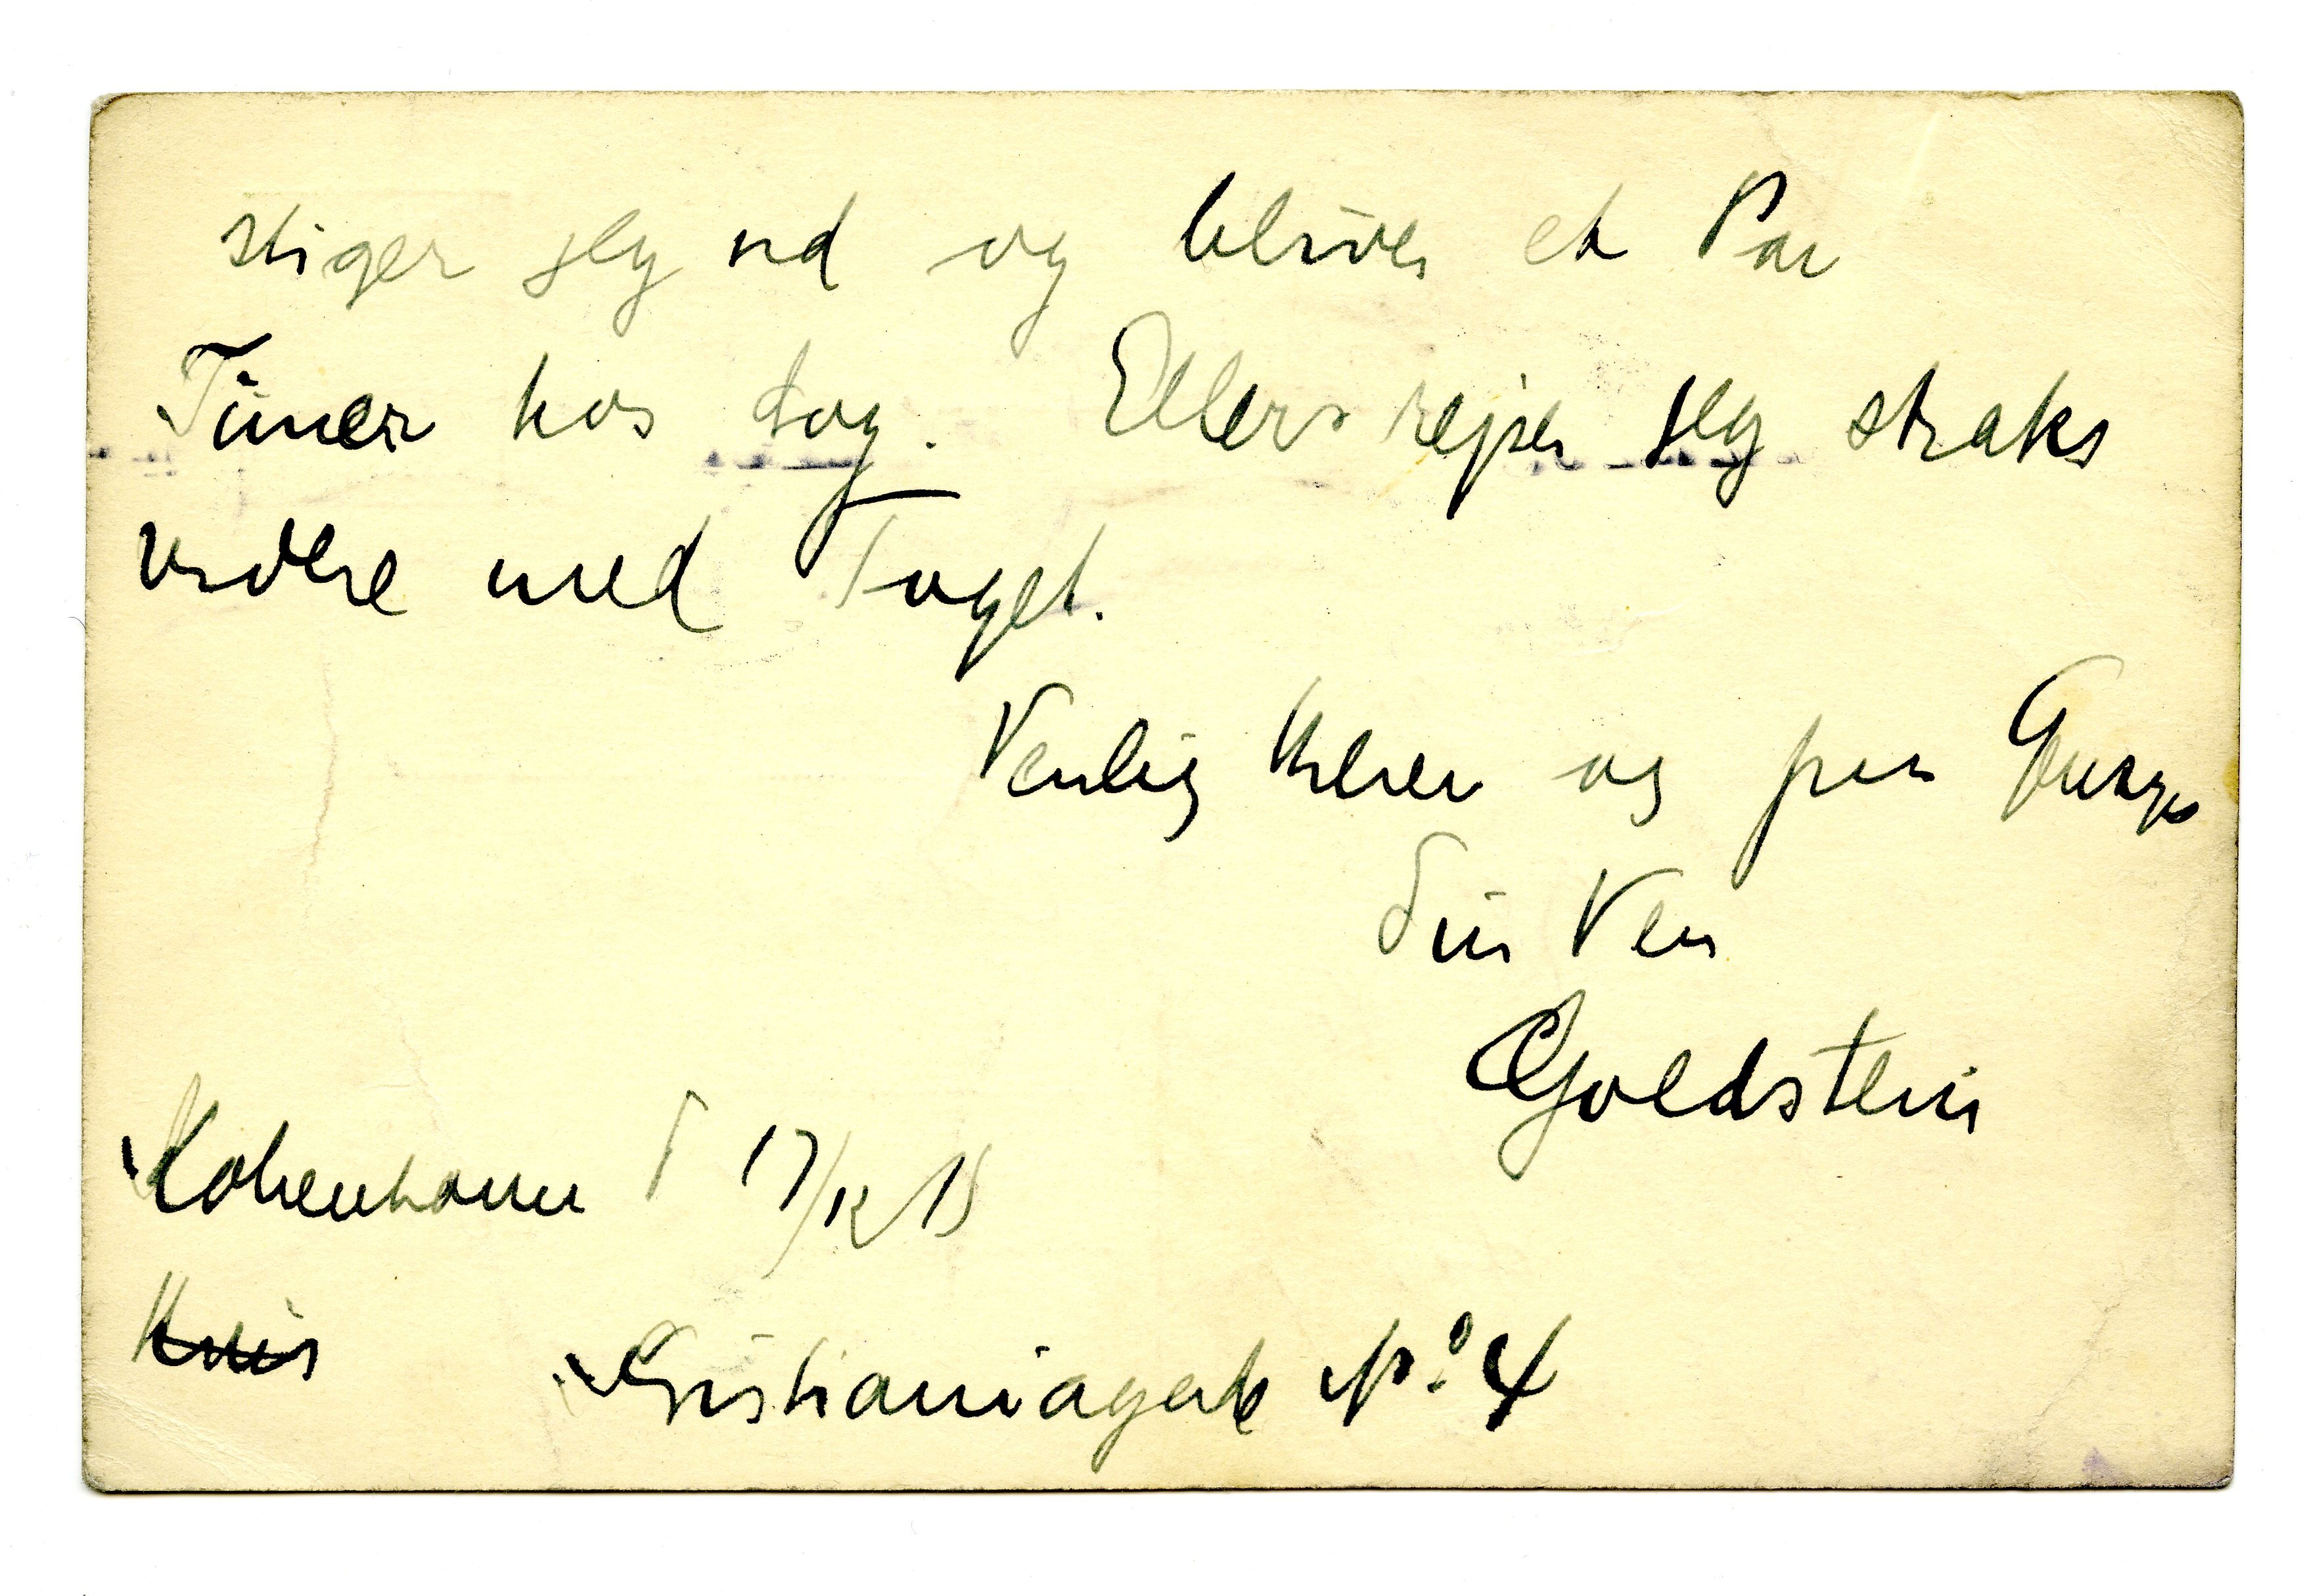 stiger jeg ud og bliver et Par
Timer hos dig. Ellers rejser jeg straks
videre med Toget.
Venlig Hilsen og paa Gensyn
Din Ven
Goldstein
København d 17/12 15
Hvis
Kristianiagade No: 4